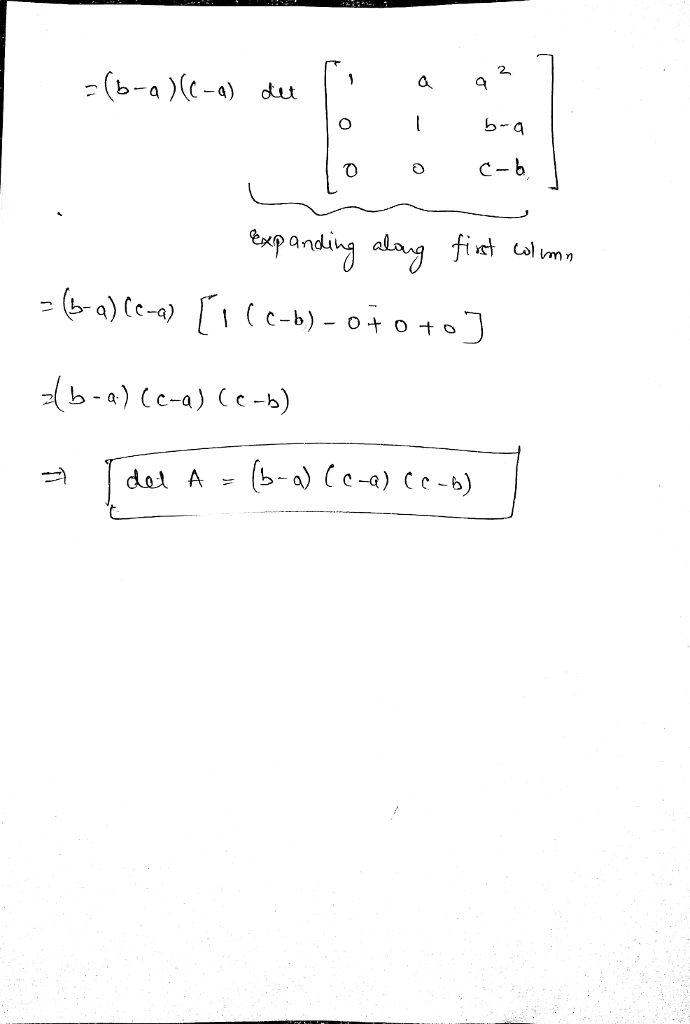 =(b-a)(c-a) det [ 1 a a²
0 1 b-a
0 0 c-b ]
expanding along first column
=(b-a)(c-a) [1(c-b)-0+0+0]
=(b-a)(c-a)(c-b)
⇒ det A = (b-a)(c-a)(c-b)